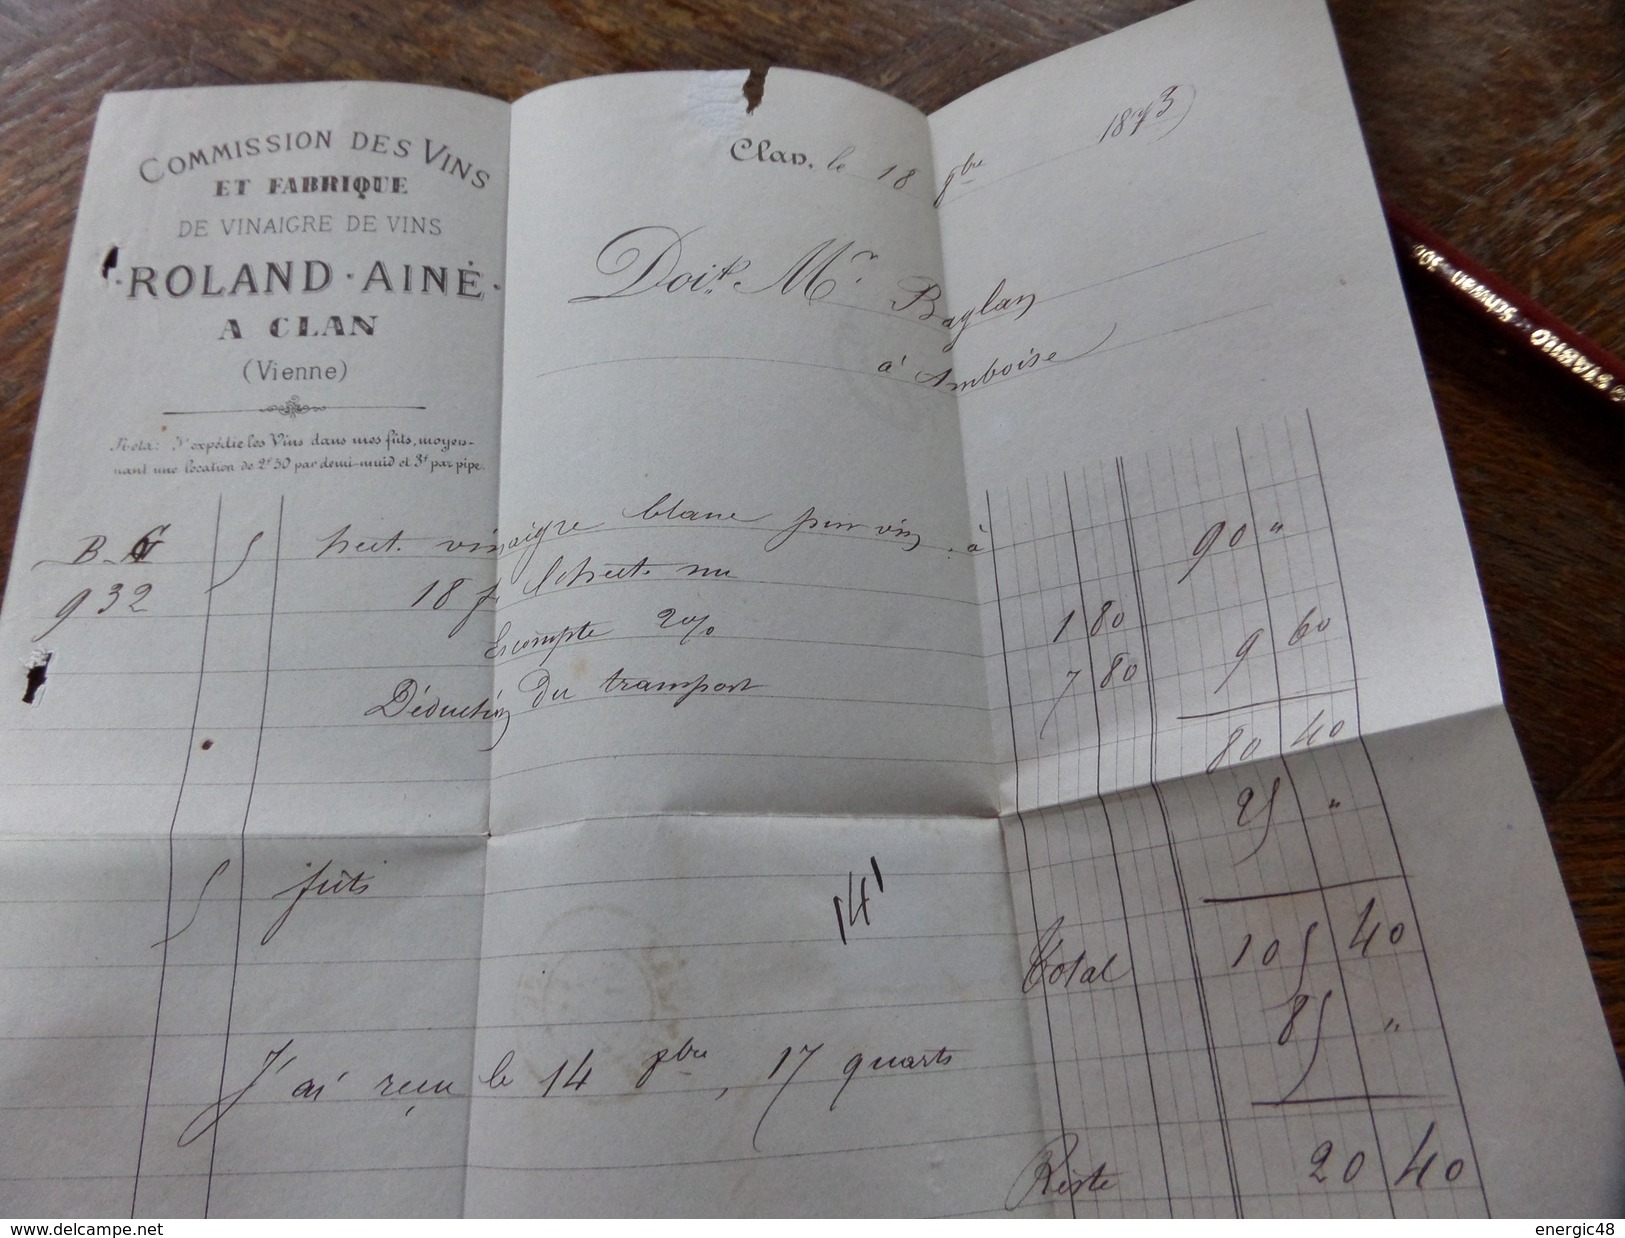 COMMISSION DES VINS
ET FABRIQUE
DE VINAIGRE DE VINS
ROLAND · AINÉ
A CLAN
(Vienne)
Nota: J'expédie les Vins dans mes fûts, moyen-
nant une location de 2f 50 par demi-muid et 3f par pipe.
Clan, le 18 bre 1873
Doit Mr Baglan
à Amboise
B. G 5 hect. vinaigre blanc pur vin à
932 18 f. l'hect. nu 90 "
Escompte 2% 1 80
Déduction du transport 7 80 9 60
80 40
5 fûts 25 "
14
Total 105 40
J'ai reçu le 14 bre, 17 quarts 85 "
Reste 20 40
STABILO Schwan
www.delcampe.net
energic48